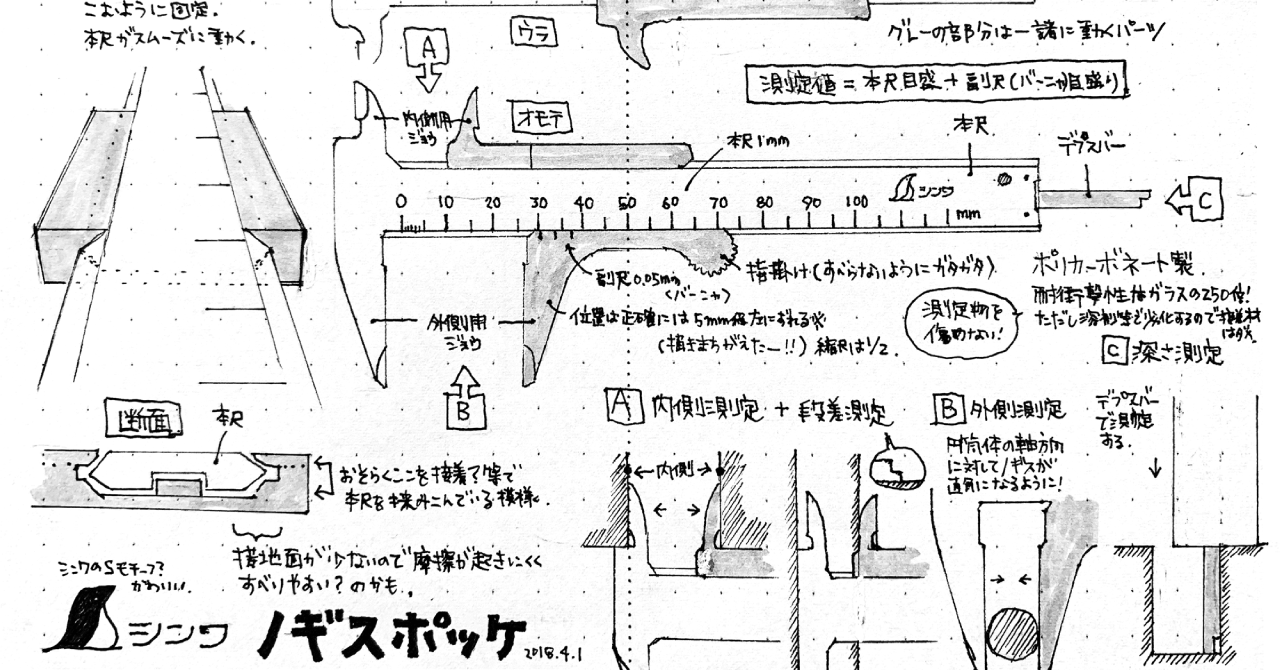 こむように固定。
本尺がスムーズに動く。
ウラ
グレーの部分は一諸に動くパーツ
A
測定値=本尺目盛+副尺(バーニャ目盛り)
内側用
ジョウ
オモテ
本尺1mm
本尺
デプスバー
シンワ
C
0 10 20 30 40 50 60 70 80 90 100
mm
副尺0.05mm
(バーニャ)
指掛け(すべらないようにガタガタ)
ポリカーボネート製.
耐衝撃性はガラスの250倍!
ただし溶剤等で劣化するので接着材
はダメ
外側用
ジョウ
位置は正確には5mm
(描きまちがえたー!!)縮尺は1/2.
測定物を
傷めない!
B
C 深さ測定
断面
本尺
A 内側測定+段差測定
B 外側測定
デプスバー
で測定
する.
おそらくここを接着?等で
本尺を挟みこんでいる模様.
内側
円筒体の軸方向
に対してノギスが
直角になるように!
接地面が少ないので摩擦が起きにくく
すべりやすい?のかも.
シンワのSモチーフ?
かわいい.
シンワ
ノギスポッケ
2018.4.1